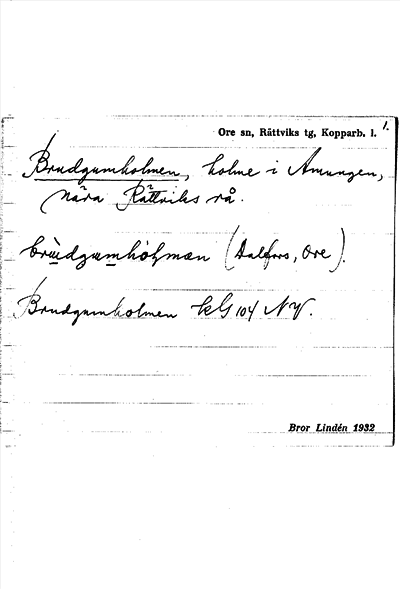 Ore sn, Rättviks tg, Kopparb. l. 1.
Brudgumholmen, holme i Amungen,
nära Rättviks rå.
(Dalfors, Ore).
Brudgumholmen kG 104 NV.
Bror Lindén 1932